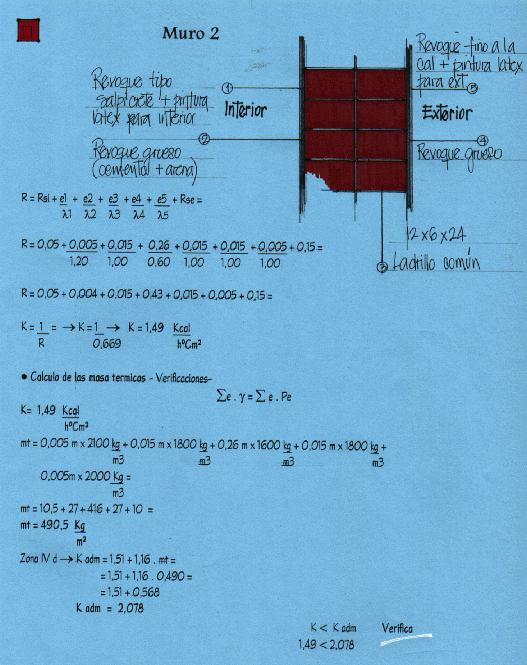 Muro 2
Revoque tipo
salpicrete + pintura
latex para interior
1
Interior
2
Revoque grueso
(cemental + arena)
Revoque fino a la
cal + pintura latex
para ext
5
Exterior
4
Revoque grueso
12 x 6 x 24
3
Ladrillo común
R = Rsi + e1 + e2 + e3 + e4 + e5 + Rse =
λ1 λ2 λ3 λ4 λ5
R = 0,05 + 0,005 + 0,015 + 0,26 + 0,015 + 0,015 + 0,005 + 0,15 =
1,20 1,00 0,60 1,00 1,00 1,00
R = 0,05 + 0,004 + 0,015 + 0,43 + 0,015 + 0,005 + 0,15 =
K = 1 = → K = 1 → K = 1,49 Kcal
R 0,669 h°Cm²
• Calculo de las masa termicas - Verificaciones-
∑e . γ = ∑ e . Pe
K= 1,49 Kcal
h°Cm²
mt = 0,005 m x 2100 kg + 0,015 m x 1800 kg + 0,26 m x 1600 kg + 0,015 m x 1800 kg +
m3 m3 m3 m3
0,005m x 2000 Kg =
m3
mt = 10,5 + 27 + 416 + 27 + 10 =
mt = 490,5 Kg
m²
Zona IV d → K adm = 1,51 + 1,16 . mt =
= 1,51 + 1,16 . 0,490 =
= 1,51 + 0,568
K adm = 2,078
K < K adm Verifica
1,49 < 2,078